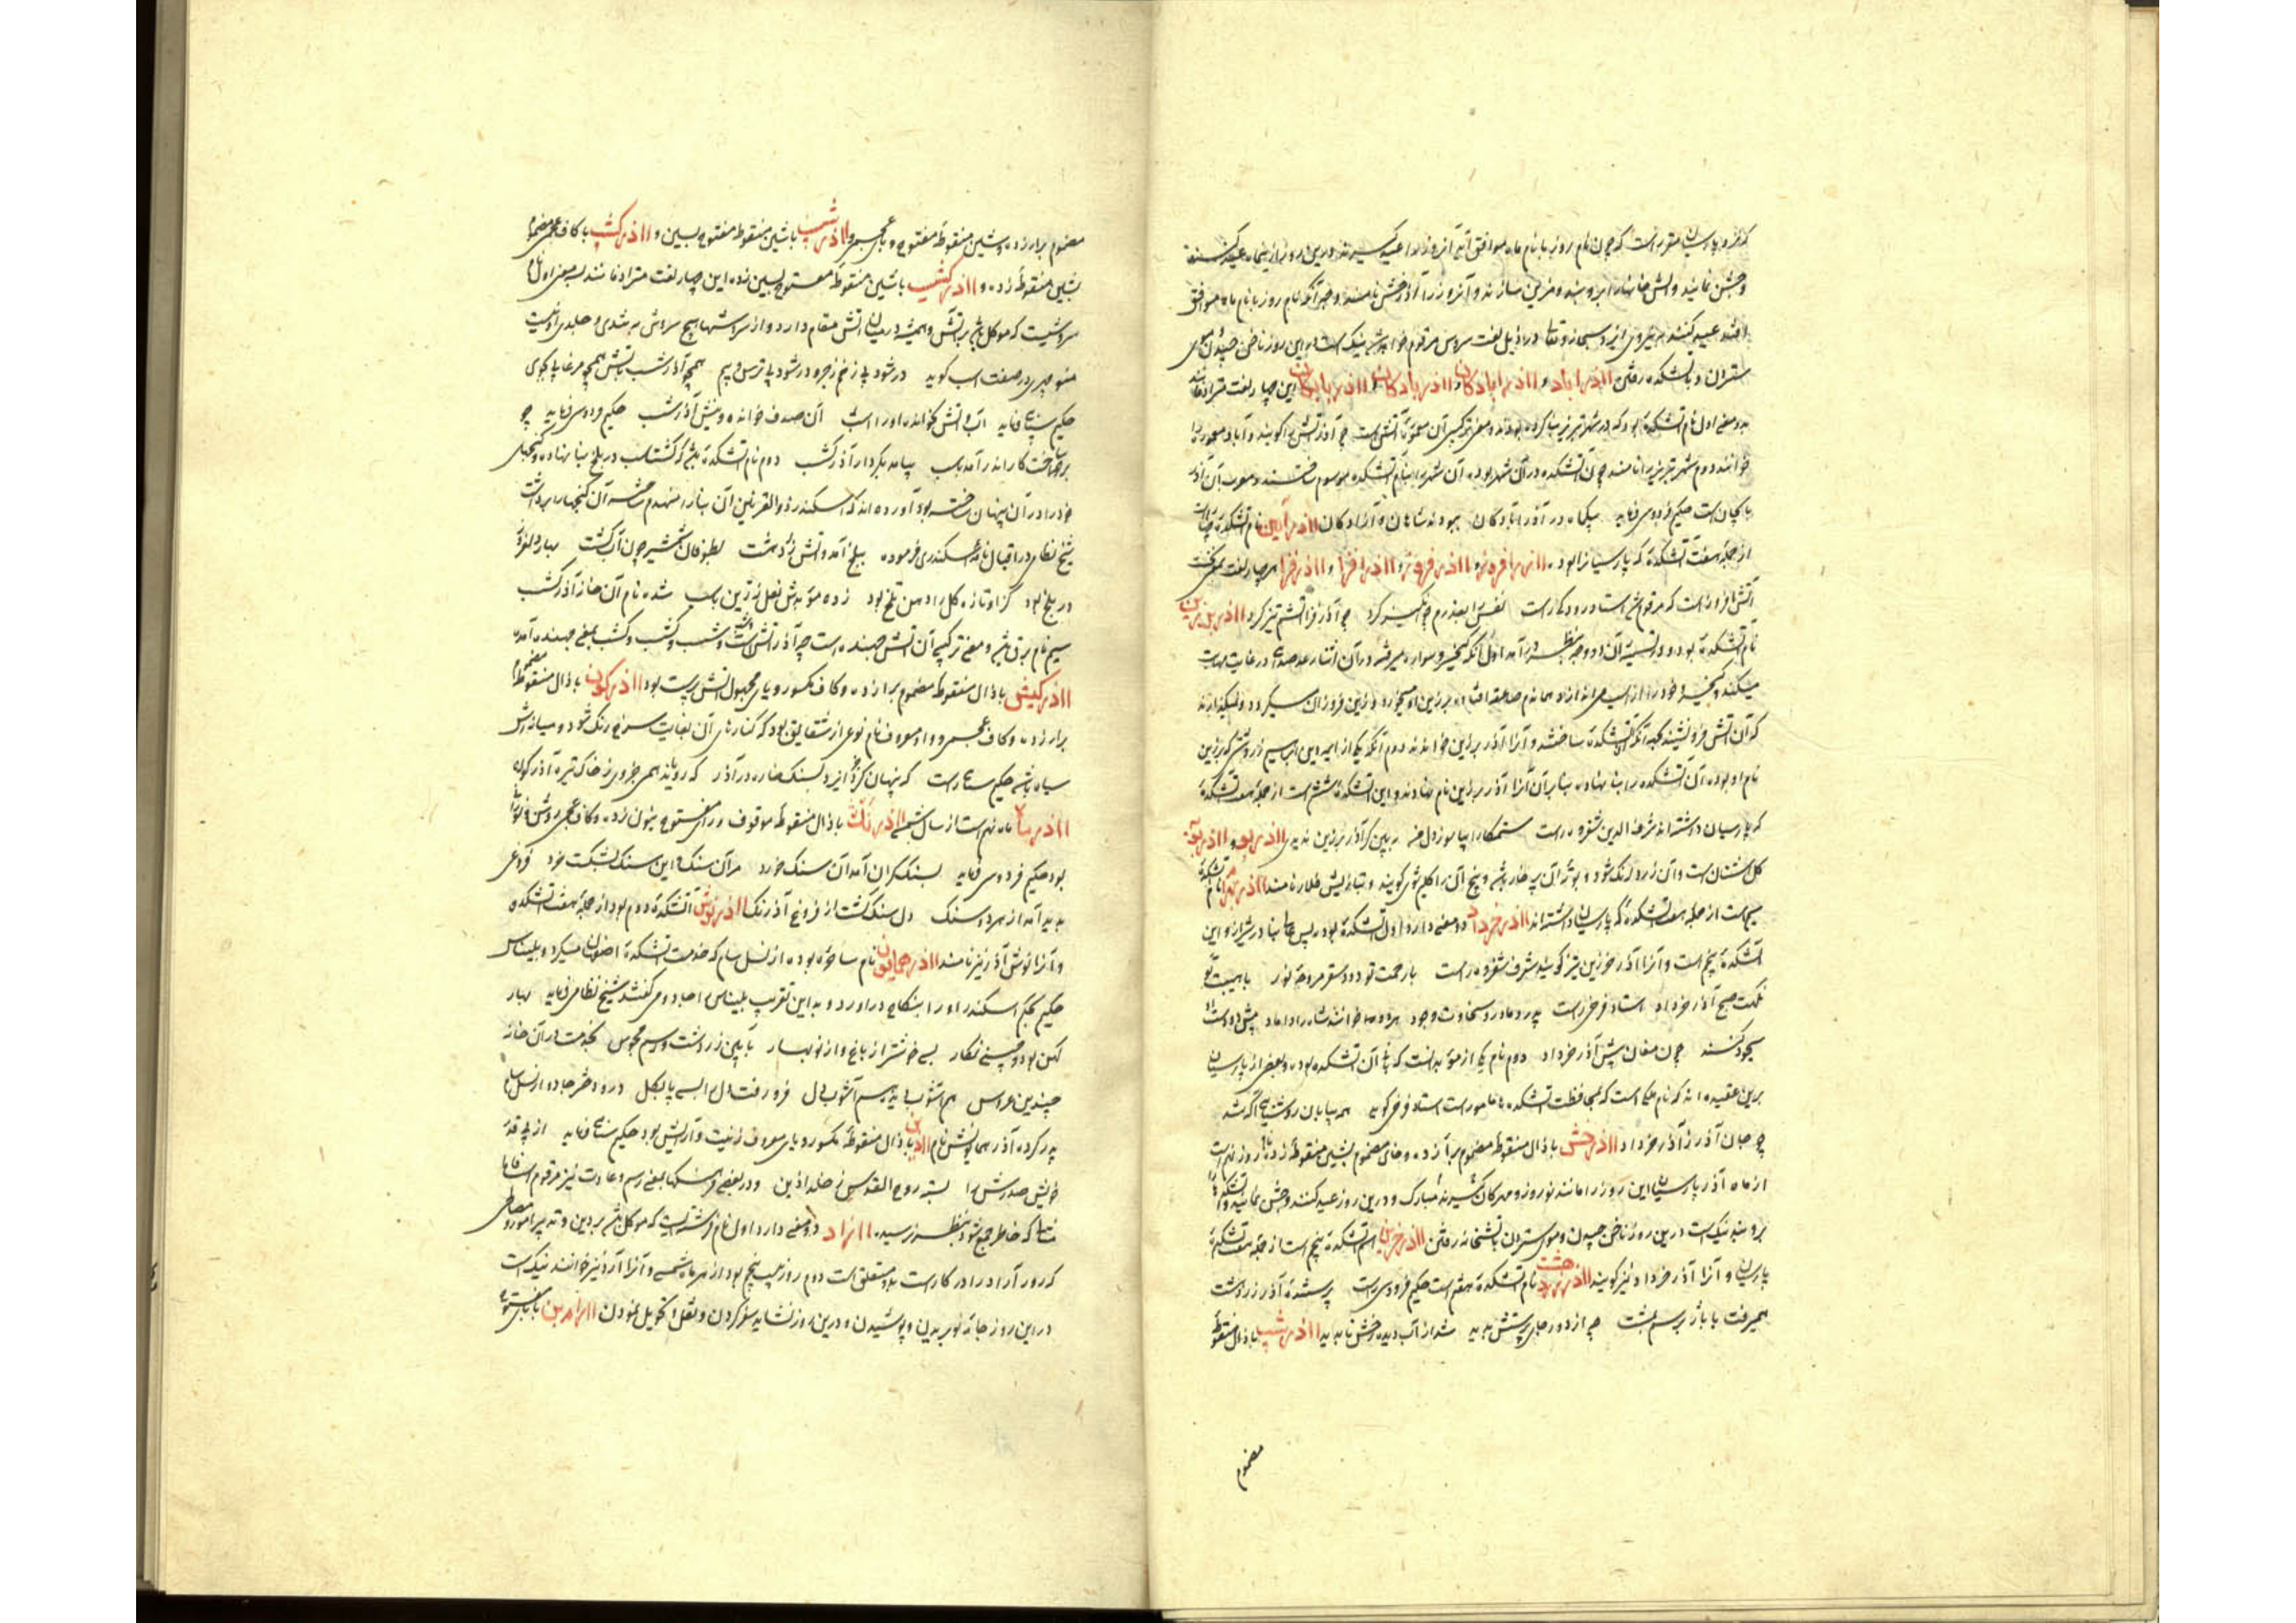 که نزد پارسیان مقرر است که چون نام روز با نام ماه موافق آید آنروز را عید گیرند درین روز ازین ماه عید کنند
و جشن نمایند و آتش خانها را بروبند و مزین سازند و آنروز را آذر جشن نامند و جهة آنکه نام روز با نام ماه موافق
افتد عید کنند در ذیل لغت سروش مرقوم خواهد شد نیک است درین روز ناخن چیدن و موی
ستردن و بآتشکده رفتن اا اذر اباد و اا اذر ابادگان و اا اذر بادگان و اا اذر بایگان این چهار لغت مترادفند
بدو معنی اول نام آتشکده بود که در شهر تبریز بنا کرده بودند و معنی ترکیبی آن معمورهٔ آتش است چه آذر آتش را گویند و آباد معمور را
خوانند دوم شهر تبریز را نامند چون آن آتشکده در آن شهر بود آن شهر را بنام آتشکده موسوم ساختند و معرب آن آذر
بایجان است حکیم فردوسی فرماید بیکماه در آذرابادگان ببودند شاهان و آزادگان اا اذر ایین نام آتشکدهٔ
از جملهٔ هفت آتشکده که پارسیانرا بوده اا اذر افروز و اا اذر فروز و اا اذر افزا و اا اذر فزا هر چهار لغت بمعنی
آتش افروز است که مرقوم شد استاد رودکی راست نفس را بعذرم چو انگیز کرد چو آذر فزا آتشم تیز کرد اا اذر برزین
نام آتشکده بود و در تسمیهٔ آن دو وجه بنظر در آمد اول آنکه کیخسرو سواره میرفت در آن اثنا رعد صدای در غایت مهابت
میکند کیخسرو خود را از اسب می اندازد همانزمان صاعقه افتاده بر زین او میخورد و زین فروزان میگردد و نمیگذارند
که آن آتش فرو نشیند همانجا آتشکدهٔ ساختند و آنرا آذر برزین خوانند دوم آنکه یکی از ائمه دین ابراهیم زردشت که برزین
نام او بوده آن آتشکده را بنا نهاده بنا بر آن آنرا آذر برزین نام نهادند و این آتشکده ششم است از جمله هفت آتشکدهٔ
که پارسیان داشته اند شرف الدین شفروه راست ستمکارا بیاموز دل من ببین گر آذر برزین ندیدی اا اذر بو و اا اذر بویه
گل اشنان است و آن زرد رنگ شود و بوتهٔ آن پر خار باشد و بیخ آن را گلیم شوی گویند و بتازیش غلار نامند اا اذر بهرام نام آتشکدهٔ
سیم است از جمله هفت آتشکده که پارسیان داشته اند اا اذر خرداد دو معنی دارد اول آتشکده بود پس عالی بنا در شیراز و این
آتشکدهٔ پنجم است و آنرا آذر خرزین نیز گویند شرف شفروه راست با رحمت تو دود سقر مروحهٔ نور با هیبت تو
نکهت صبح آذر خرداد استاد فرخی راست پدر و مادر سخاوت و جود هر دو خوانند شاه را داماد پیش دو دست او
سجود کنند چون مغان پیش آذر خرداد دوم نام یکی از موبدانست که بانی آن آتشکده بوده و بعضی از پارسیان
برین عقیده اند که نام ملکی است که بمحافظت آتشکده ها مامور است استاد فرخی گوید همه بیابان زروشنایی آگه شد
چو جان آذر ز آذر خرداد اا اذر خش با ذال منقوطه مضموم برا زده و خای مضموم بشین منقوطه زده نام روز نهم است
از ماه آذر پارسیان این روز را مانند نوروز و مهرگان گیرند مبارک و درین روز عید کنند و جشن نمایند و آتشکدها
بروبند نیک است درین روز ناخن چیدن و موی ستردن بآتشخانه رفتن اا اذر خرین اسم آتشکدهٔ پنجم است از جمله هفت آتشکدهٔ
پارسیان و آنرا آذر خرداد نیز گویند اا اذر زردهشت نام آتشکدهٔ هفتم است حکیم فردوسی راست پرستندهٔ آذر زردهشت
همیرفت با باژ و برسم بمشت چو از دور جای پرستش بدید شد از آب دیده رخش ناپدید اا اذر شب با ذال منقوطه
مضموم
مضموم برا زده و شین منقوطه مفتوح و بای عجمی و اا اذر شسپ با شین منقوطه مفتوح بسین و اا اذر گشپ با کاف عجمی مضموم
بشین منقوطه زده و اا اذر گشسپ با شین منقوطه مفتوح بسین زده این چهار لغت مترادفانند بسه معنی اول نام
سروشیست که موکل باشد بر آتش و همیشه در میان آتش مقام دارد و از سروشها هیچ سروش به تندی و جلدی او نیست
منوچهری در صفت اسب گوید در شود بی زخم و زجر و در شود بی ترس و بیم همچو آذرشب بآتش همچو مرغابی بجوی
حکیم سنایی فرماید آب و آتش چو اندر او راست آن صدف خوانده و بینش آذرشب حکیم فردوسی فرماید چو
بر ساخت کار اندر آمد باسب بیامد بکردار آذر گشسب دوم نام آتشکدهٔ باشد که گشتاسب در بلخ بنا نهاده و گنجهای
خود را در آن پنهان ساخته بود آورده اند که اسکندر ذوالقرنین آن بنا را منهدم ساخته آن گنجها را برداشت
شیخ نظامی در اقبال نامه اسکندری فرموده ببلخ آمد و آتش زردهشت بطوفان شمشیر چون آب کشت بهار دلفروز
در بلخ بود کزو تازه گل را دهن تلخ بود زده موبدش نعل زرین بر اسب شده نام آن خانه آذر گشسب
سیم نام برق باشد و معنی ترکیبی آن آتش جهنده است چه آذر آتش است و شسب و گشب و گشسب بمعنی جهنده آمده
اا اذر کیش با ذال منقوطه مضموم برا زده و کاف مکسور و یای مجهول آتش پرست بود اا اذر گون با ذال منقوطه مضموم
برا زده و کاف عجمی و واو معروف نام نوعی از شقایق بود که کنارهای آن بغایت سرخ رنگ شود و میانش
سیاه باشد حکیم سنایی راست که پنهان کرد جز ایزد بسنگ خاره در آذر که رویاند همی جز وی ز خاک تیره آذرگون
اا اذر ماه ماه نهم است از سال شمسی اا اذر نگ با ذال منقوطه موقوف و رای مفتوح بنون زده و کاف عجمی روشن و نورانی
بود حکیم فردوسی فرماید بسنگ گران آمد آن سنگ خرد هم آن سنگ و این سنگ بشکست خرد فروغی
پدید آمد از هر دو سنگ دل سنگ گشت از فروغ آذرنگ اا اذر نوش آتشکدهٔ دوم بود از جمله هفت آتشکده
و آنرا نوش آذر نیز نامند اا اذر همایون نام ساحرهٔ بوده از نسل سام که خدمت آتشکدهٔ اصفهان میکرد و بلیناس
حکیم بحکم اسکندر او را بنکاح در اورد و به این تقریب بلیناس را جادو می گفتند شیخ نظامی فرماید بهار
کهن بود و چینی نگار بسی خوشتر از باغ و از نوبهار بآیین زردشت و رسم مجوس بخدمت در آن خانه
چندین عروس همه آشوب دیده هم آشوب دل فرو رفته دل را بسی پا بگل درو دختر جادو از نسل سام
پدر کرده آذر همایونش نام اا اذین با ذال منقوطه مکسور و یای معروف زینت و آرایش بود حکیم سنایی فرماید از پی قد
خویش صدرش را بسته روح القدس ز خلد اذین و در بعضی فرهنگها بمعنی رسم و عادت نیز مرقوم است اما
مثالی که خاطر جمع شود بنظر نرسیده اا اراد دو معنی دارد اول نام فرشته ایست که موکل باشد بر دین و تدبیر امور و مصالح
که روز آراد در کارست بدو متعلق است دوم روز بیست و پنجم بود از هر ماه شمسی و آنرا آرد نیز خوانند نیک است
در این روز جامهٔ نو بریدن و پوشیدن و درین روز نشاید سفر کردن و نقل و تحویل نمودن اا ارامدین با بای مفتوح